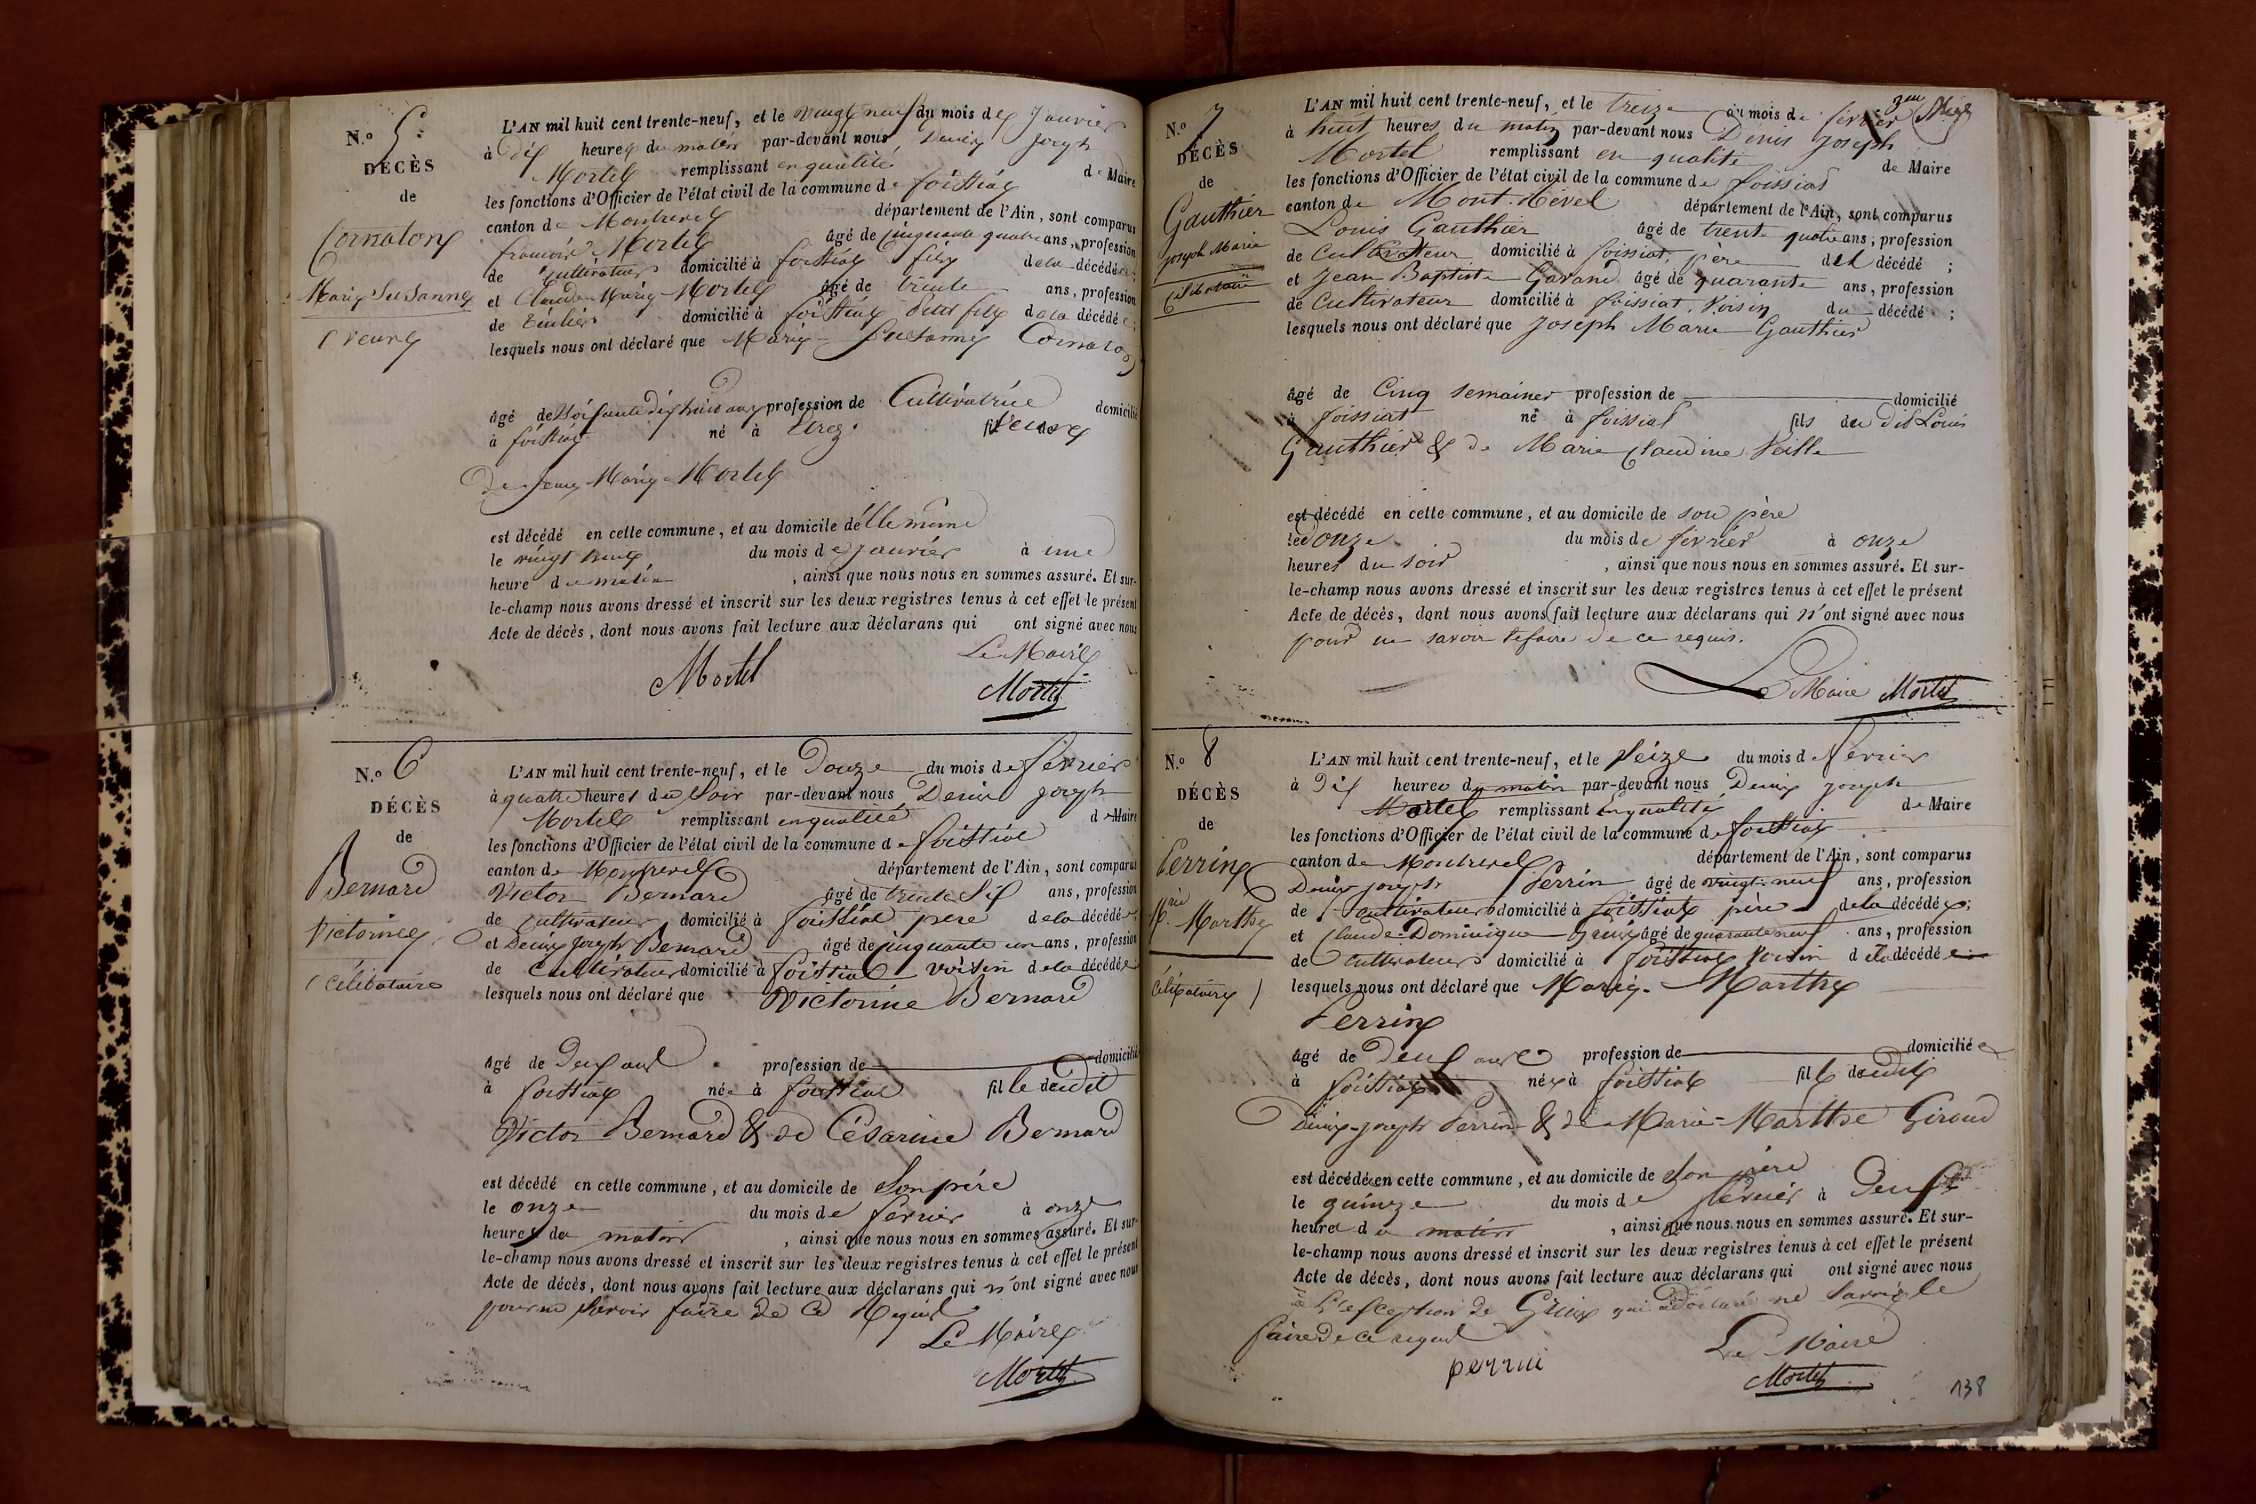 N.o 5.
DÉCÈS
de
Cornaton
Marie Susanne
veuve
L'AN mil huit cent trente-neuf, et le vingt neuf du mois de Janvier
à dix heures du matin par-devant nous Denis Joseph
Mortel remplissant en qualité de Maire
les fonctions d'Officier de l'état civil de la commune de foissiat
canton de Montrevel département de l'Ain, sont comparus
françois Mortel âgé de cinquante quatre ans, profession
de Cultivateur domicilié à foissiat fils de la décédée ;
et Claude Marie Mortel âgé de trente ans, profession
de domicilié à foissiat petit fils de la décédée ;
lesquels nous ont déclaré que Marie Susanne Cornaton
âgé de Soixante dix huit ans profession de Cultivatrice domicilié
à foissiat né à Etrez. veuve
De Jean Marie Mortel
est décédé en cette commune, et au domicile d'elle même
le vingt neuf du mois de janvier à une
heure du matin, ainsi que nous nous en sommes assuré. Et sur-
le-champ nous avons dressé et inscrit sur les deux registres tenus à cet effet le présent
Acte de décès, dont nous avons fait lecture aux déclarans qui ont signé avec nous
Mortel Le Maire
Mortel
N.o 6
DÉCÈS
de
Bernard
Victorine
célibataire
L'AN mil huit cent trente-neuf, et le Douze du mois de février
à quatre heures du Soir par-devant nous Denis Joseph
Mortel remplissant en qualité de Maire
les fonctions d'Officier de l'état civil de la commune de foissiat
canton de Montrevel département de l'Ain, sont comparus
Victor Bernard âgé de trente Six ans, profession
de Cultivateur domicilié à foissiat père de la décédée
et Denis Joseph Bernard âgé de cinquante un ans, profession
de Cultivateur domicilié à foissiat voisin de la décédée
lesquels nous ont déclaré que Victorine Bernard
âgé de Deux ans profession de domicilié
à foissiat née à foissiat fille dudit
Victor Bernard & de Césarine Bernard
est décédé en cette commune, et au domicile de Son père
le onze du mois de février à onze
heures du matin, ainsi que nous nous en sommes assuré. Et sur-
le-champ nous avons dressé et inscrit sur les deux registres tenus à cet effet le présent
Acte de décès, dont nous avons fait lecture aux déclarans qui n'ont signé avec nous
pour ne Savoir faire de ce Requis
Le Maire
Mortel
N.o 7
DÉCÈS
de
Gauthier
Joseph Marie
Célibataire
L'AN mil huit cent trente-neuf, et le treize du mois de février
à huit heures du matin par-devant nous Denis Joseph
Mortel remplissant en qualité de Maire
les fonctions d'Officier de l'état civil de la commune de foissiat
canton de Mont-Revel département de l'Ain, sont comparus
Louis Gauthier âgé de trente quatre ans, profession
de Cultivateur domicilié à foissiat, père du décédé ;
et Jean Baptiste Gavand âgé de quarante ans, profession
de Cultivateur domicilié à foissiat, Voisin du décédé ;
lesquels nous ont déclaré que Joseph Marie Gauthier
âgé de Cinq semaines profession de domicilié
à foissiat né à foissiat fils du dit Louis
Gauthier & de Marie Claudine Veille
est décédé en cette commune, et au domicile de son père
le onze du mois de février à onze
heures du soir, ainsi que nous nous en sommes assuré. Et sur-
le-champ nous avons dressé et inscrit sur les deux registres tenus à cet effet le présent
Acte de décès, dont nous avons fait lecture aux déclarans qui n'ont signé avec nous
pour ne savoir le faire de ce requis.
Le Maire Mortel
N.o 8
DÉCÈS
de
Perrin
Marthe
Célibataire
L'AN mil huit cent trente-neuf, et le Seize du mois de février
à Dix heures du matin par-devant nous Denis Joseph
Mortel remplissant en qualité de Maire
les fonctions d'Officier de l'état civil de la commune de foissiat
canton de Montrevel département de l'Ain, sont comparus
Denis Joseph Perrin âgé de vingt-neuf ans, profession
de Cultivateur domicilié à foissiat père de la décédée ;
et Claude Dominique âgé de quarante neuf ans, profession
de Cultivateur domicilié à foissiat Voisin de la décédée
lesquels nous ont déclaré que Marie Marthe
Perrin
âgé de Deux ans profession de domiciliée
à foissiat née à foissiat fille dudit
Denis-Joseph Perrin & de Marie-Marthe Giroud
est décédée en cette commune, et au domicile de Son père
le quinze du mois de février à Deux
heures du matin, ainsi que nous nous en sommes assuré. Et sur-
le-champ nous avons dressé et inscrit sur les deux registres tenus à cet effet le présent
Acte de décès, dont nous avons fait lecture aux déclarans qui ont signé avec nous
à l'exception de qui a déclaré ne Savoir le
faire de ce requis
perrin Le Maire
Mortel
138